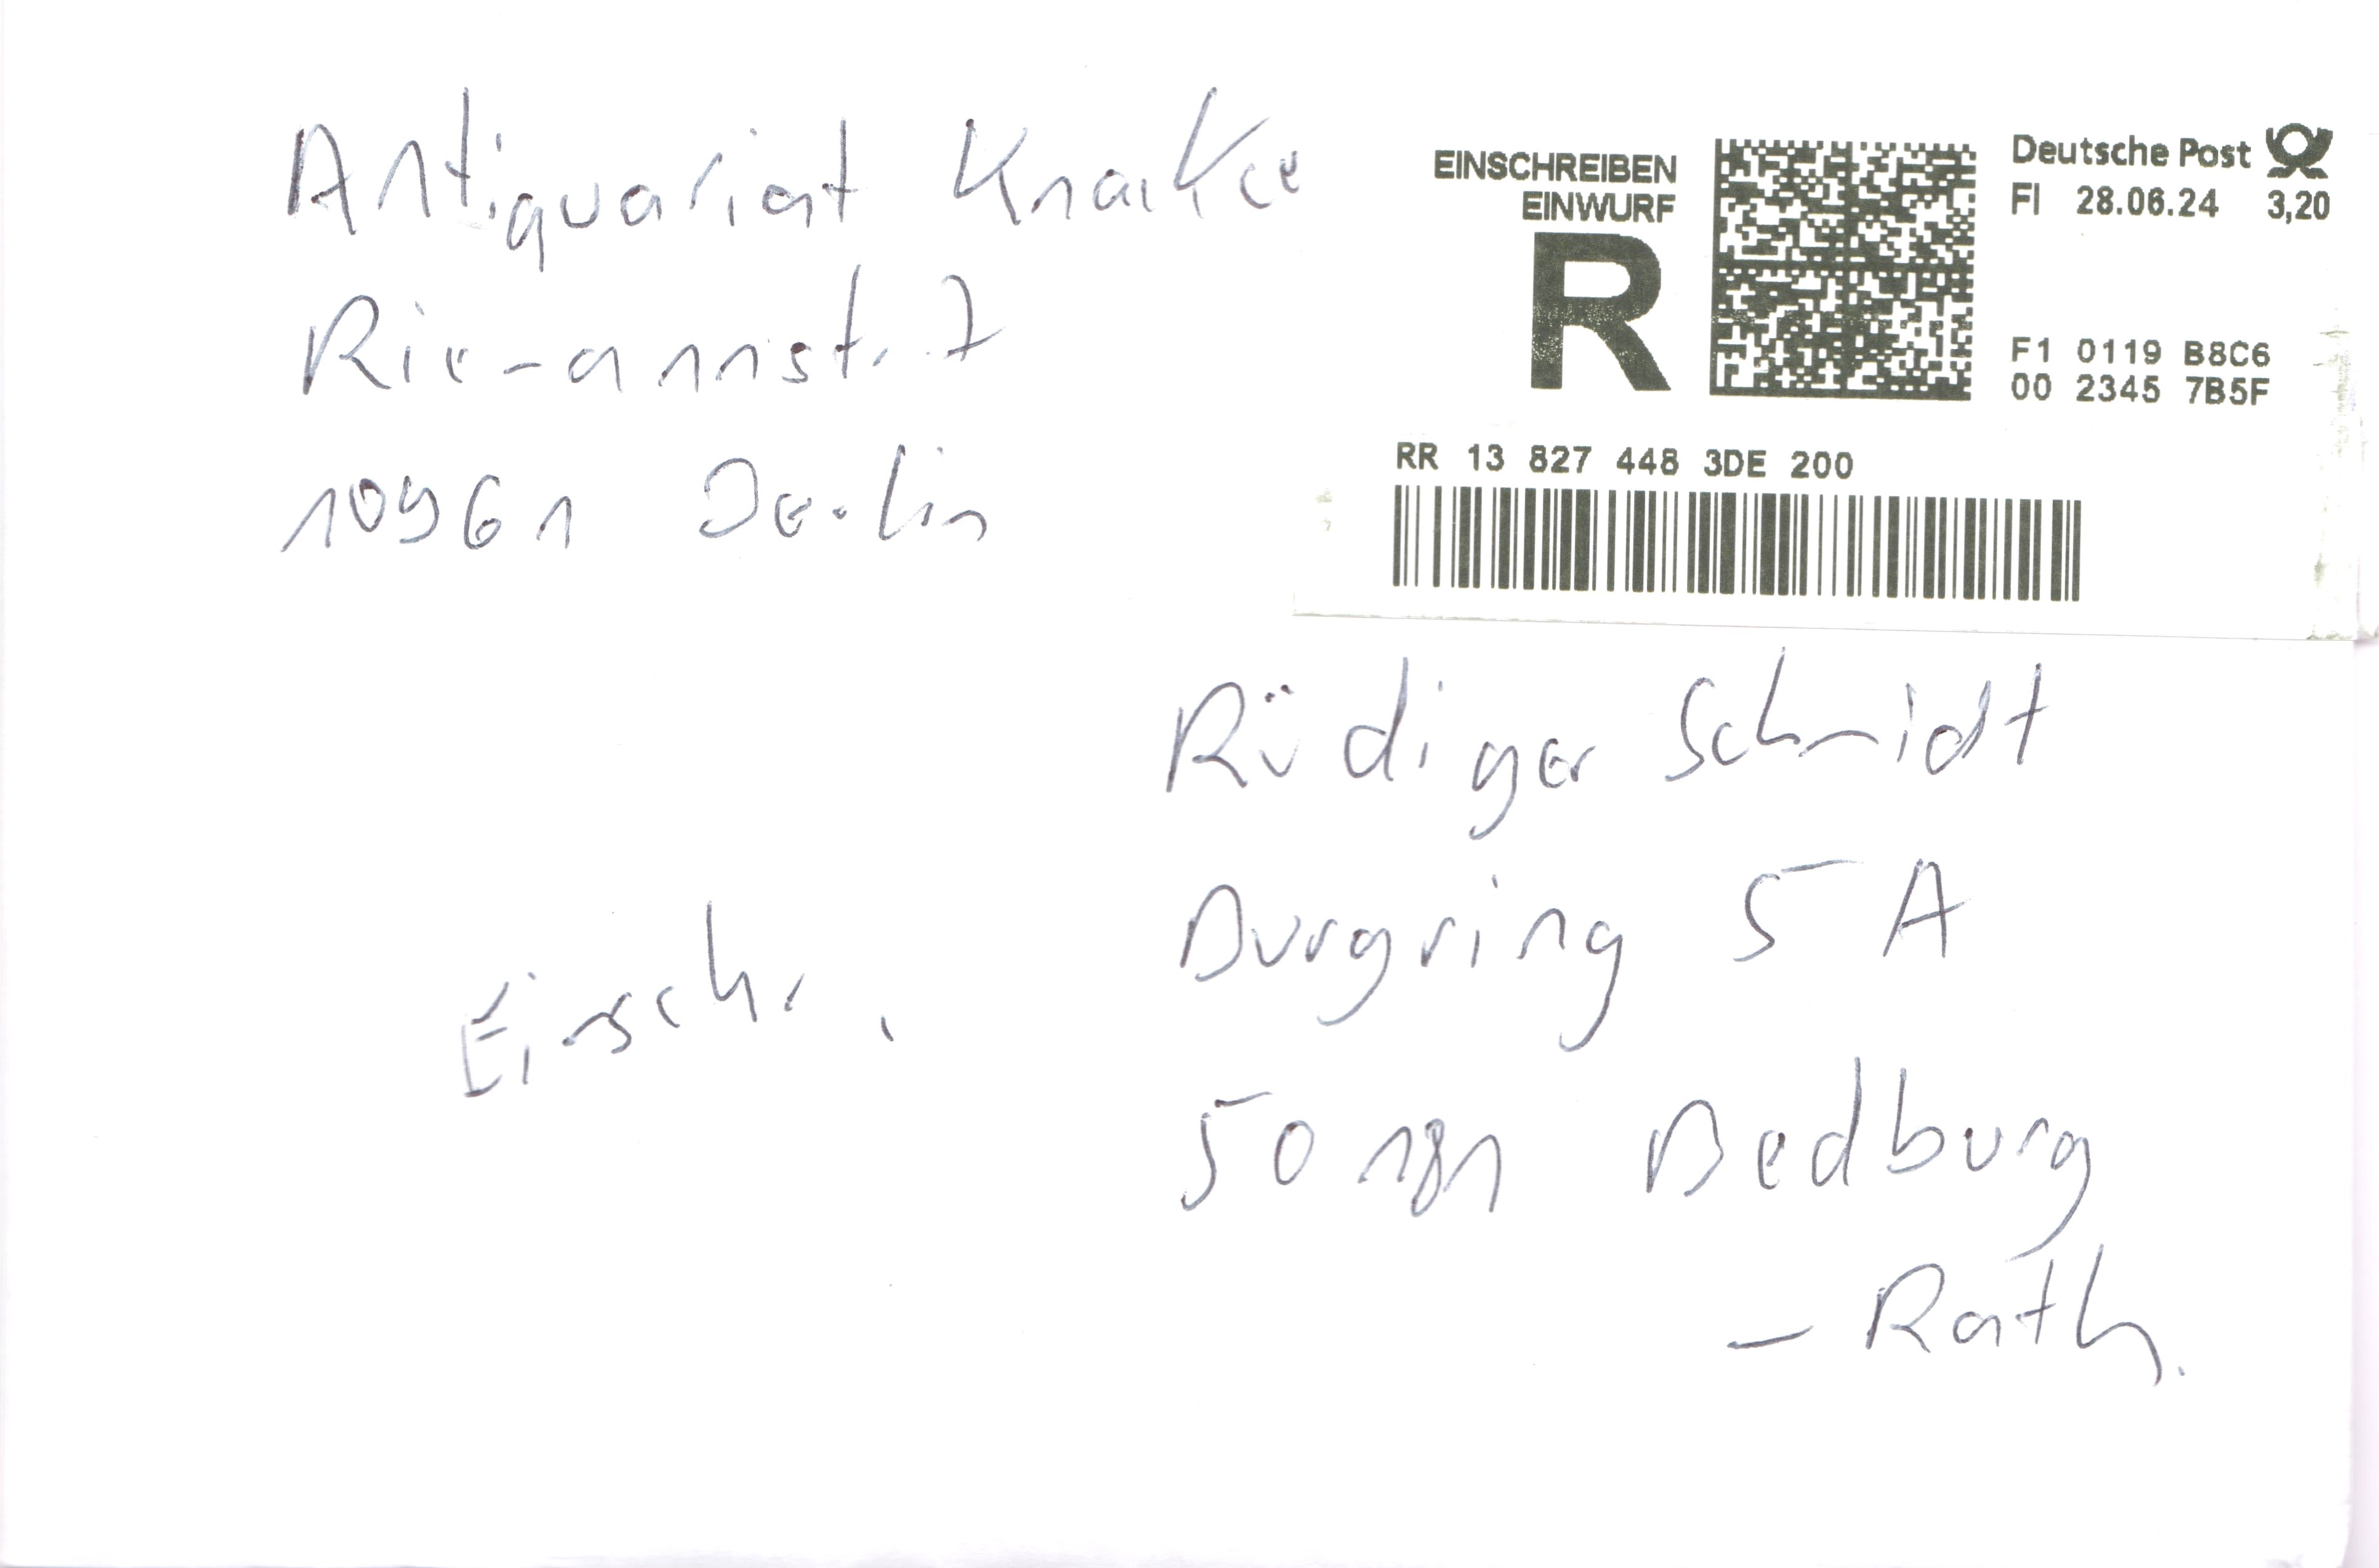 Antiquariat Knaikee
Riemannstr. 7
10961 Berlin
EINSCHREIBEN
EINWURF
R
Deutsche Post
FI 28.06.24 3,20
F1 0119 B8C6
00 2345 7B5F
RR 13 827 448 3DE 200
Rüdiger Schmidt
Burgring 5 A
Einschr.
50181 Bedburg
- Rath.